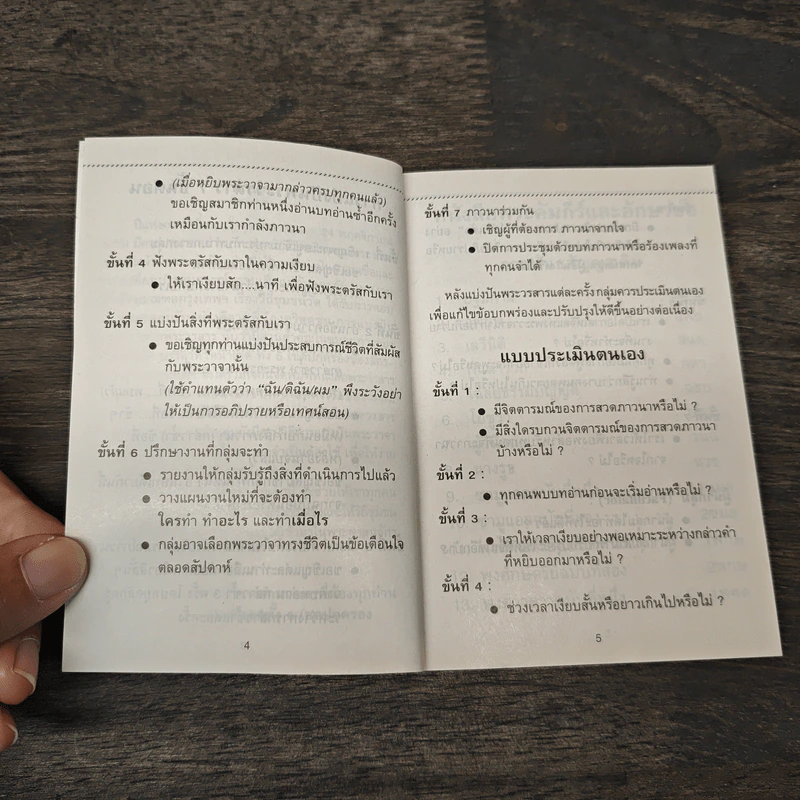 ● (เมื่อหยิบพระวาจามากล่าวครบทุกคนแล้ว)
ขอเชิญสมาชิกท่านหนึ่งอ่านบทอ่านซ้ำอีกครั้ง
เหมือนกับเรากำลังภาวนา
ขั้นที่ 4 ฟังพระตรัสกับเราในความเงียบ
● ให้เราเงียบสัก....นาที เพื่อฟังพระตรัสกับเรา
ขั้นที่ 5 แบ่งปันสิ่งที่พระตรัสกับเรา
● ขอเชิญทุกท่านแบ่งปันประสบการณ์ชีวิตที่สัมผัส
กับพระวาจานั้น
(ใช้คำแทนตัวว่า “ฉัน/ดิฉัน/ผม” พึงระวังอย่า
ให้เป็นการอภิปรายหรือเทศน์สอน)
ขั้นที่ 6 ปรึกษางานที่กลุ่มจะทำ
● รายงานให้กลุ่มรับรู้ถึงสิ่งที่ดำเนินการไปแล้ว
● วางแผนงานใหม่ที่จะต้องทำ
ใครทำ ทำอะไร และทำเมื่อไร
● กลุ่มอาจเลือกพระวาจาทรงชีวิตเป็นข้อเตือนใจ
ตลอดสัปดาห์
4
ขั้นที่ 7 ภาวนาร่วมกัน
● เชิญผู้ที่ต้องการ ภาวนาจากใจ
● ปิดการประชุมด้วยบทภาวนาหรือร้องเพลงที่
ทุกคนจำได้
หลังแบ่งปันพระวรสารแต่ละครั้ง กลุ่มควรประเมินตนเอง
เพื่อแก้ไขข้อบกพร่องและปรับปรุงให้ดีขึ้นอย่างต่อเนื่อง
แบบประเมินตนเอง
ขั้นที่ 1 :
● มีจิตตารมณ์ของการสวดภาวนาหรือไม่ ?
● มีสิ่งใดรบกวนจิตตารมณ์ของการสวดภาวนา
บ้างหรือไม่ ?
ขั้นที่ 2 :
● ทุกคนพบบทอ่านก่อนจะเริ่มอ่านหรือไม่ ?
ขั้นที่ 3 :
● เราให้เวลาเงียบอย่างพอเหมาะระหว่างกล่าวคำ
ที่หยิบออกมาหรือไม่ ?
ขั้นที่ 4 :
● ช่วงเวลาเงียบสั้นหรือยาวเกินไปหรือไม่ ?
5